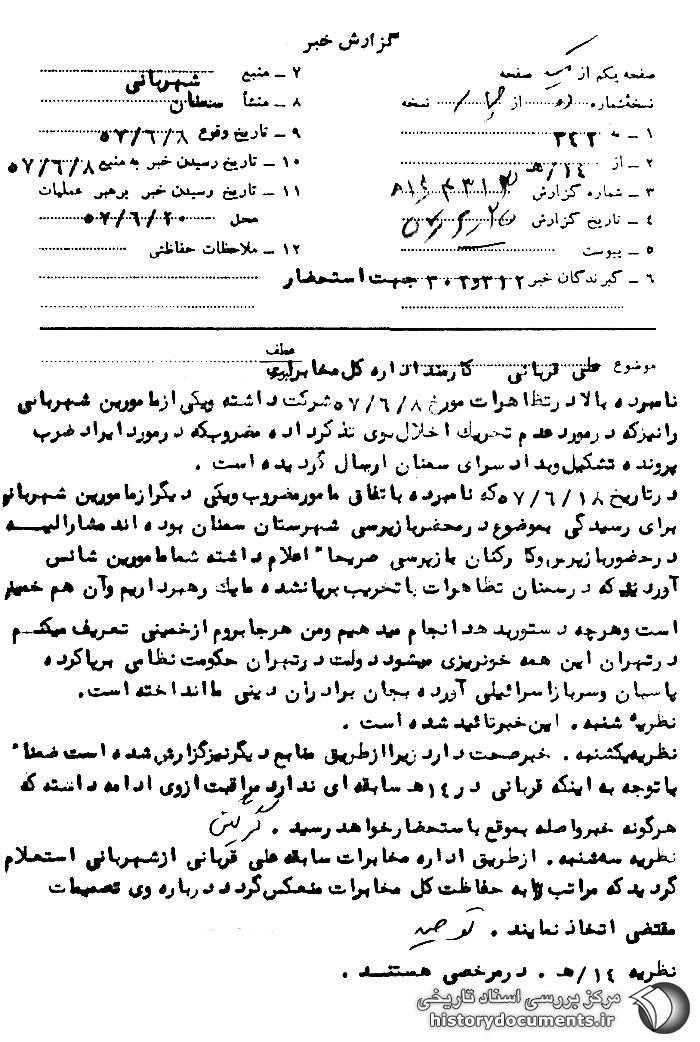 گزارش خبر
صفحه یکم از یک صفحه
نسخه‌شماره از چهار نسخه
۱ ـ به ۳۴۲
۲ ـ از ۱۴/ هـ
۳ ـ شماره گزارش
۴ ـ تاریخ گزارش
۵ ـ پیوست
۶ ـ گیرندگان خبر ۳۱۲و۳۰۲ جهت استحضار
۷ ـ منبع شهربانی
۸ ـ منشأ سمنان
۹ ـ تاریخ وقوع ۵۷/۶/۸
۱۰ ـ تاریخ رسیدن خبر به منبع ۵۷/۶/۸
۱۱ ـ تاریخ رسیدن خبر برهبر عملیات
محل ۵۷/۶/۲۰
۱۲ ـ ملاحظات حفاظتی
موضوع علی قربانی کارمند اداره کل مخابراتی
عطف
پیرو
نامبرده بالا در تظاهرات مورخ ۵۷/۶/۸ شرکت داشته ویکی ازمامورین شهربانی
رانیزکه درمورد عدم تحریك اخلال بوی تذکرداده مضروبکه درمورد ایراد ضرب
پرونده تشکیل وبدادسرای سمنان ارسال گردیده است .
درتاریخ ۵۷/۶/۱۸ که نامبرده باتفاق مامورمضروب ویکی دیگرازمامورین شهربانی
برای رسیدگی بموضوع درمحضربازپرسی شهرستان سمنان بوده اند مشارالیه
درحضوربازپرس وکارکنان بازپرسی صریحا" اعلام داشته شمامامورین شانس
آوردیدکه درسمنان تظاهرات باتخریب برپانشده مایك رهبرداریم وآن هم خمینی
است وهرچه دستوربدهدانجام میدهیم ومن هرجابروم ازخمینی تعریف میکنم
درتهران این همه خونریزی میشود دولت درتهران حکومت نظامی برپاکرده
پاسبان وسربازاسرائیلی آورده بجان برادران دینی ماانداخته است.
نظریه شنبه. این خبرتائید شده است .
نظریه‌یکشنبه . خبرصحت دارد زیراازطریق منابع دیگرنیزگزارش شده است ضمنا"
باتوجه به اینکه قربانی در۱۴هـ سابقه ای ندارد مراقبت ازوی ادامه داشته که
هرگونه خبرواصله بموقع باستحضارخواهد رسید .
نظریه سه‌شنبه. ازطریق اداره مخابرات سابقه علی قربانی ازشهربانی استعلام
گردیدکه مراتب به حفاظت کل مخابرات منعکس گردد درباره وی تصمیمات
مقتضی اتخاذ نمایند .
نظریه ۱۴/هـ . درمرخصی هستند .
مرکز بررسی اسناد تاریخی
historydocuments.ir